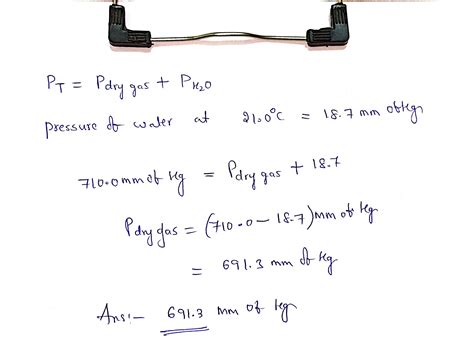 P_T = P dry gas + P_H₂O
pressure of water at 21.0°C = 18.7 mm of Hg
710.0 mm of Hg = P dry gas + 18.7
P dry gas = (710.0 - 18.7) mm of Hg
= 691.3 mm of Hg
Ans:- 691.3 mm of Hg